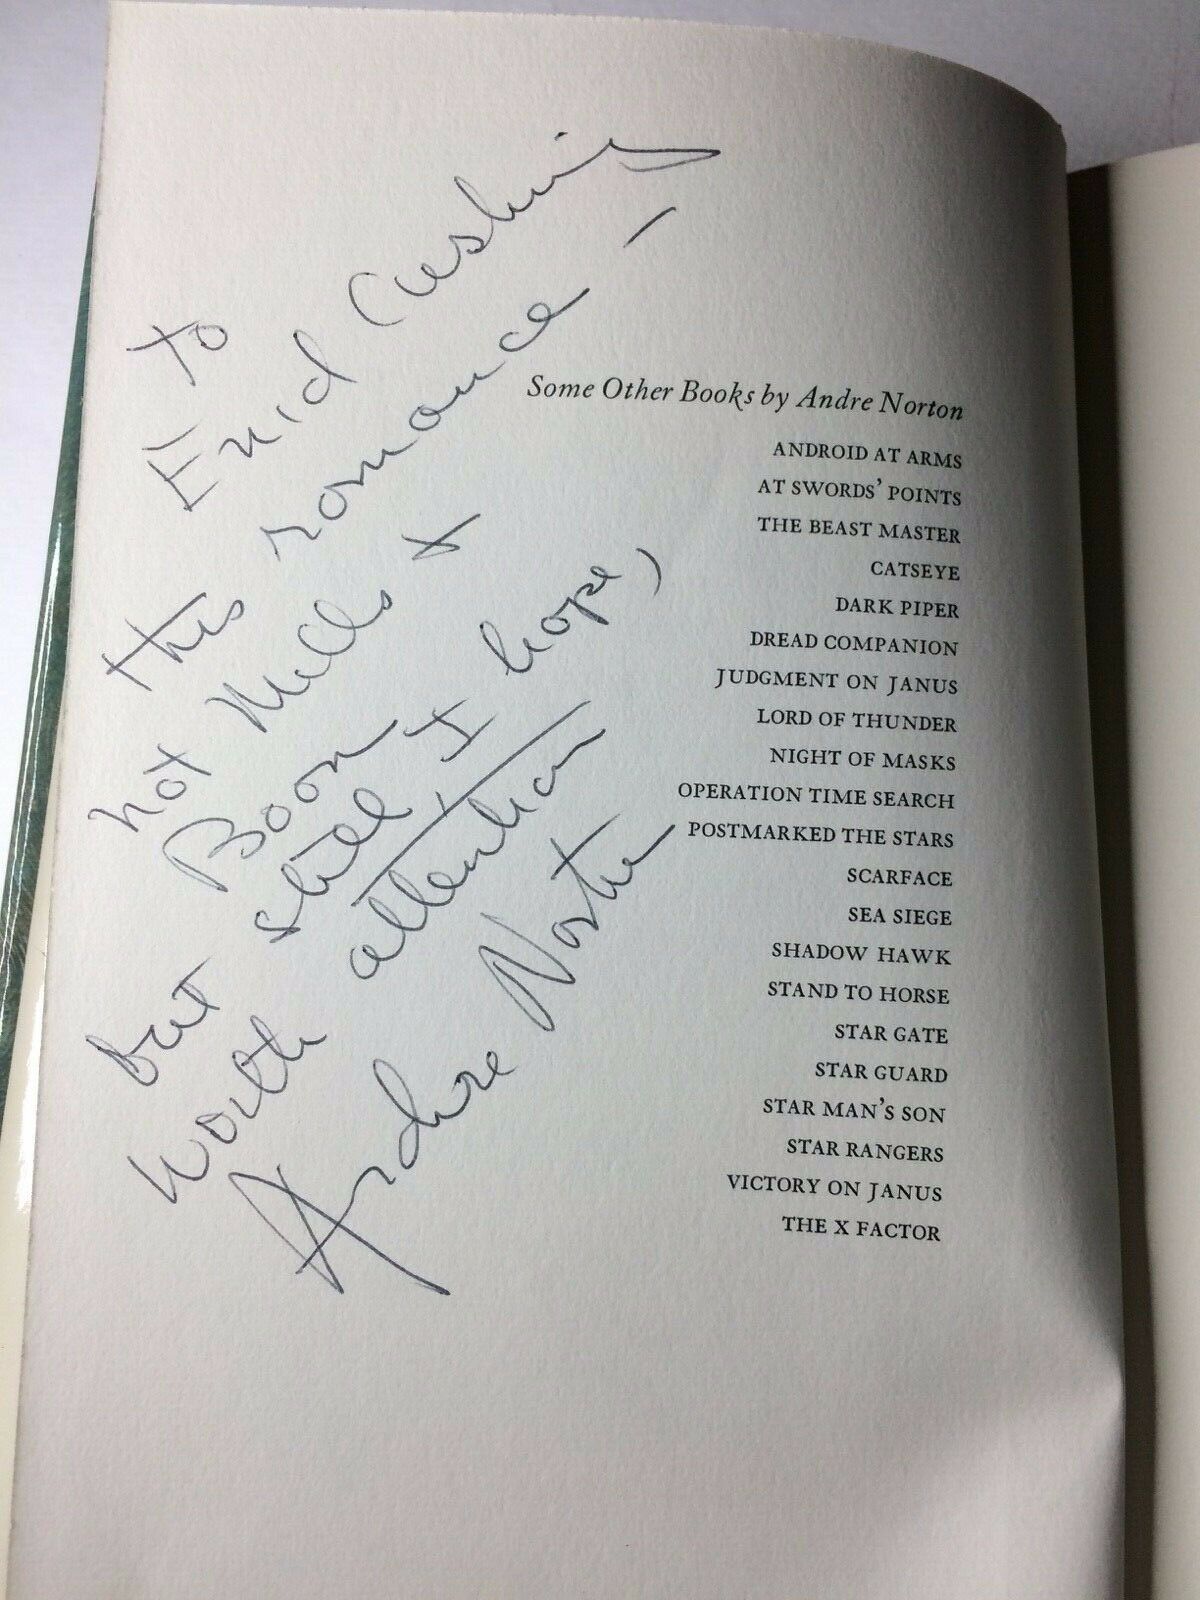 To
Enid Cushing
this romance –
not Mills +
Boon
but still, I hope,
worth attention
Andre Norton
Some Other Books by Andre Norton
ANDROID AT ARMS
AT SWORDS' POINTS
THE BEAST MASTER
CATSEYE
DARK PIPER
DREAD COMPANION
JUDGMENT ON JANUS
LORD OF THUNDER
NIGHT OF MASKS
OPERATION TIME SEARCH
POSTMARKED THE STARS
SCARFACE
SEA SIEGE
SHADOW HAWK
STAND TO HORSE
STAR GATE
STAR GUARD
STAR MAN'S SON
STAR RANGERS
VICTORY ON JANUS
THE X FACTOR